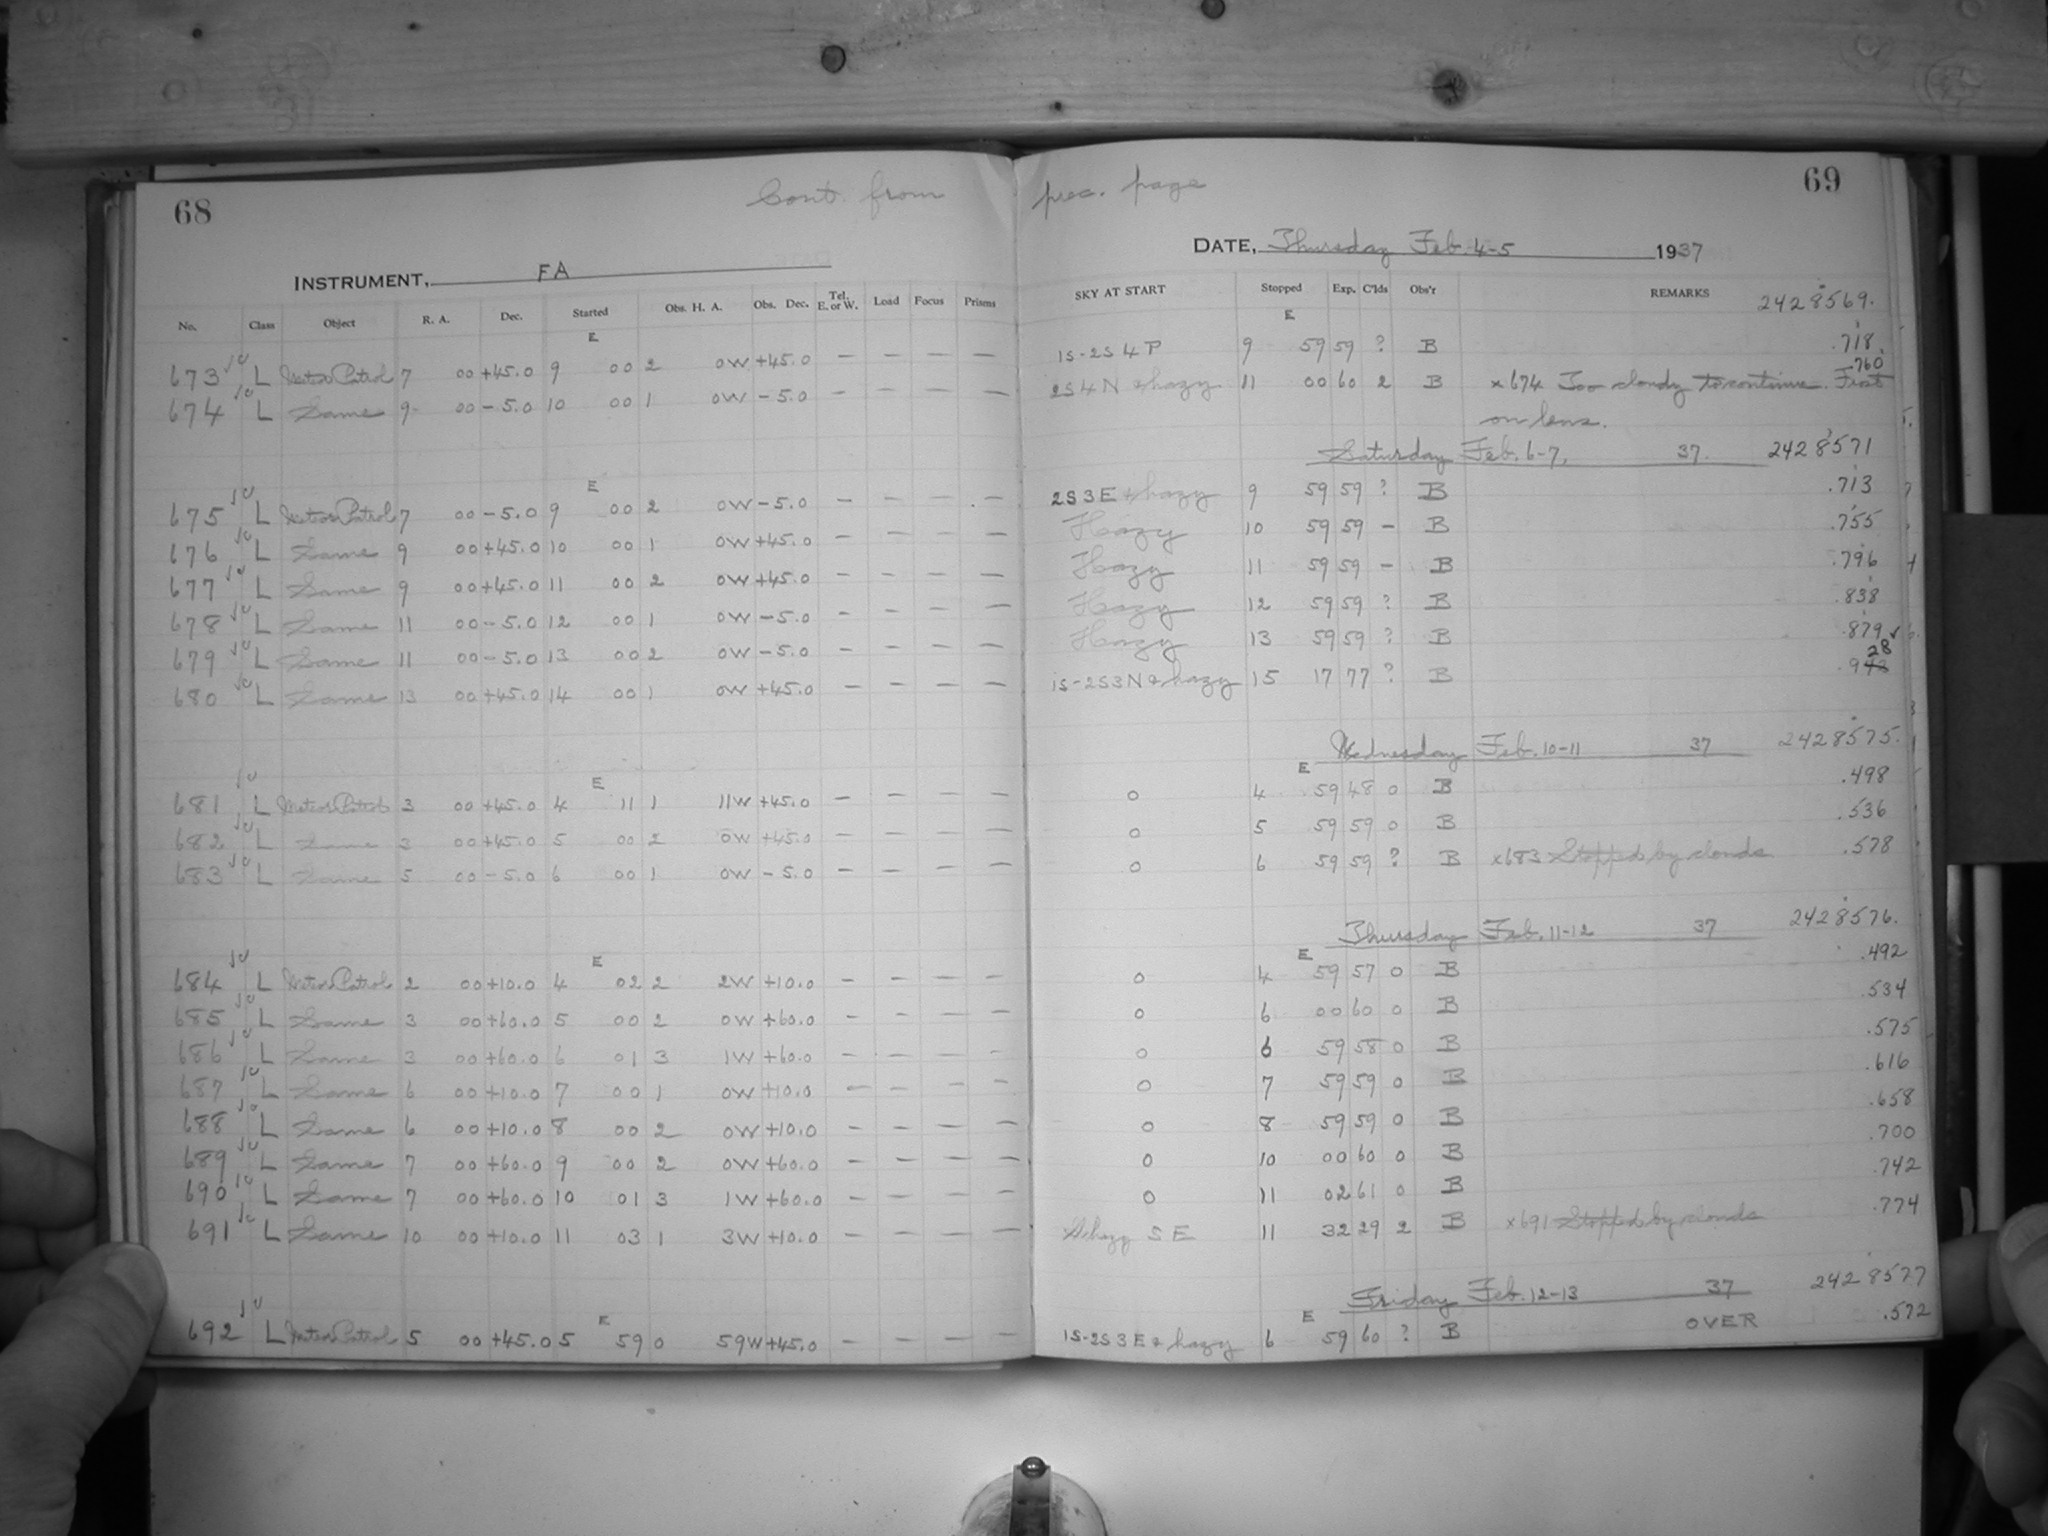 68
Cont. from prec. page
69
INSTRUMENT, FA
DATE, Thursday Feb. 4-5 1937
No. Class Object R. A. Dec. Started Obs. H. A. Obs. Dec. Tel. E. or W. Load Focus Prisms SKY AT START Stopped Exp. C'lds Obs'r REMARKS 2428569.
E E
673 L Meteor Patrol 7 00 +45.0 9 00 2 0W +45.0 — — — — 1S-2S4P 9 59 59 ? B .718
674 L Same 9 00 -5.0 10 00 1 0W -5.0 — — — — 2S4N & hazy 11 00 60 2 B x674 Too cloudy to continue. Frost .760
on lens.
Saturday Feb. 6-7, 37. 2428571
E
675 L Meteor Patrol 7 00 -5.0 9 00 2 0W -5.0 — — — — 2S3E & hazy 9 59 59 ? B .713
676 L Same 9 00 +45.0 10 00 1 0W +45.0 — — — — Hazy 10 59 59 — B .755
677 L Same 9 00 +45.0 11 00 2 0W +45.0 — — — — Hazy 11 59 59 — B .796
678 L Same 11 00 -5.0 12 00 1 0W -5.0 — — — — Hazy 12 59 59 ? B .838
679 L Same 11 00 -5.0 13 00 2 0W -5.0 — — — — Hazy 13 59 59 ? B .879
28
680 L Same 13 00 +45.0 14 00 1 0W +45.0 — — — — 1S-2S3N & hazy 15 17 77 ? B .9
Wednesday Feb. 10-11 37 2428575.
E E
681 L Meteor Patrol 3 00 +45.0 4 11 1 11W +45.0 — — — — 0 4 59 48 0 B .498
682 L Same 3 00 +45.0 5 00 2 0W +45.0 — — — — 0 5 59 59 0 B .536
683 L Same 5 00 -5.0 6 00 1 0W -5.0 — — — — 0 6 59 59 ? B x683 Stopped by clouds .578
Thursday Feb. 11-12 37 2428576.
E E
684 L Meteor Patrol 2 00 +10.0 4 02 2 2W +10.0 — — — — 0 4 59 57 0 B .492
685 L Same 3 00 +60.0 5 00 2 0W +60.0 — — — — 0 6 00 60 0 B .534
686 L Same 3 00 +60.0 6 01 3 1W +60.0 — — — — 0 6 59 58 0 B .575
687 L Same 6 00 +10.0 7 00 1 0W +10.0 — — — — 0 7 59 59 0 B .616
688 L Same 6 00 +10.0 8 00 2 0W +10.0 — — — — 0 8 59 59 0 B .658
689 L Same 7 00 +60.0 9 00 2 0W +60.0 — — — — 0 10 00 60 0 B .700
690 L Same 7 00 +60.0 10 01 3 1W +60.0 — — — — 0 11 02 61 0 B .742
691 L Same 10 00 +10.0 11 03 1 3W +10.0 — — — — S E 11 32 29 2 B x691 Stopped by clouds .774
Friday Feb. 12-13 37 2428577
E E
692 L Meteor Patrol 5 00 +45.0 5 59 0 59W +45.0 — — — — 1S-2S3E & hazy 6 59 60 ? B OVER .572